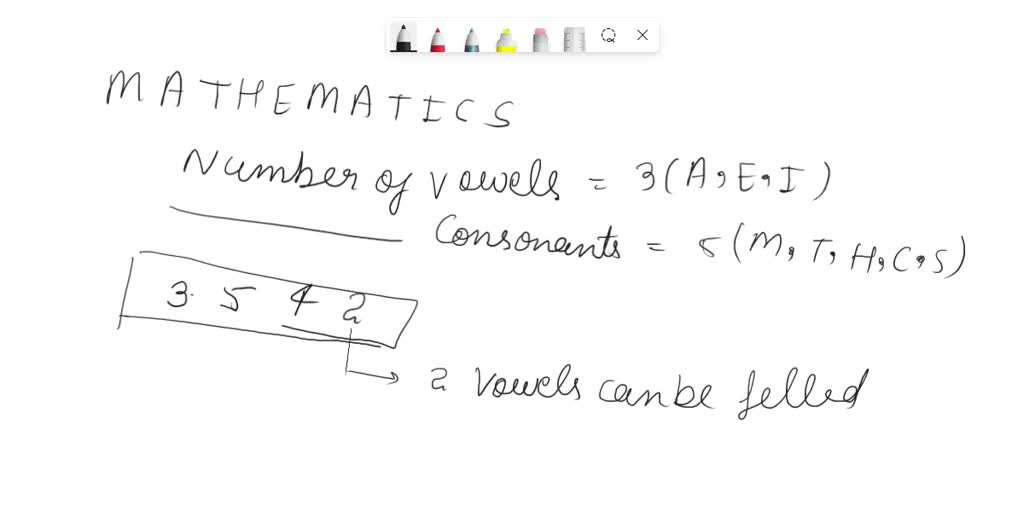 MATHEMATICS
Number of vowels = 3(A,E,I)
Consonants = 5(M,T,H,C,S)
3. 5 4 2
2 vowels can be felled